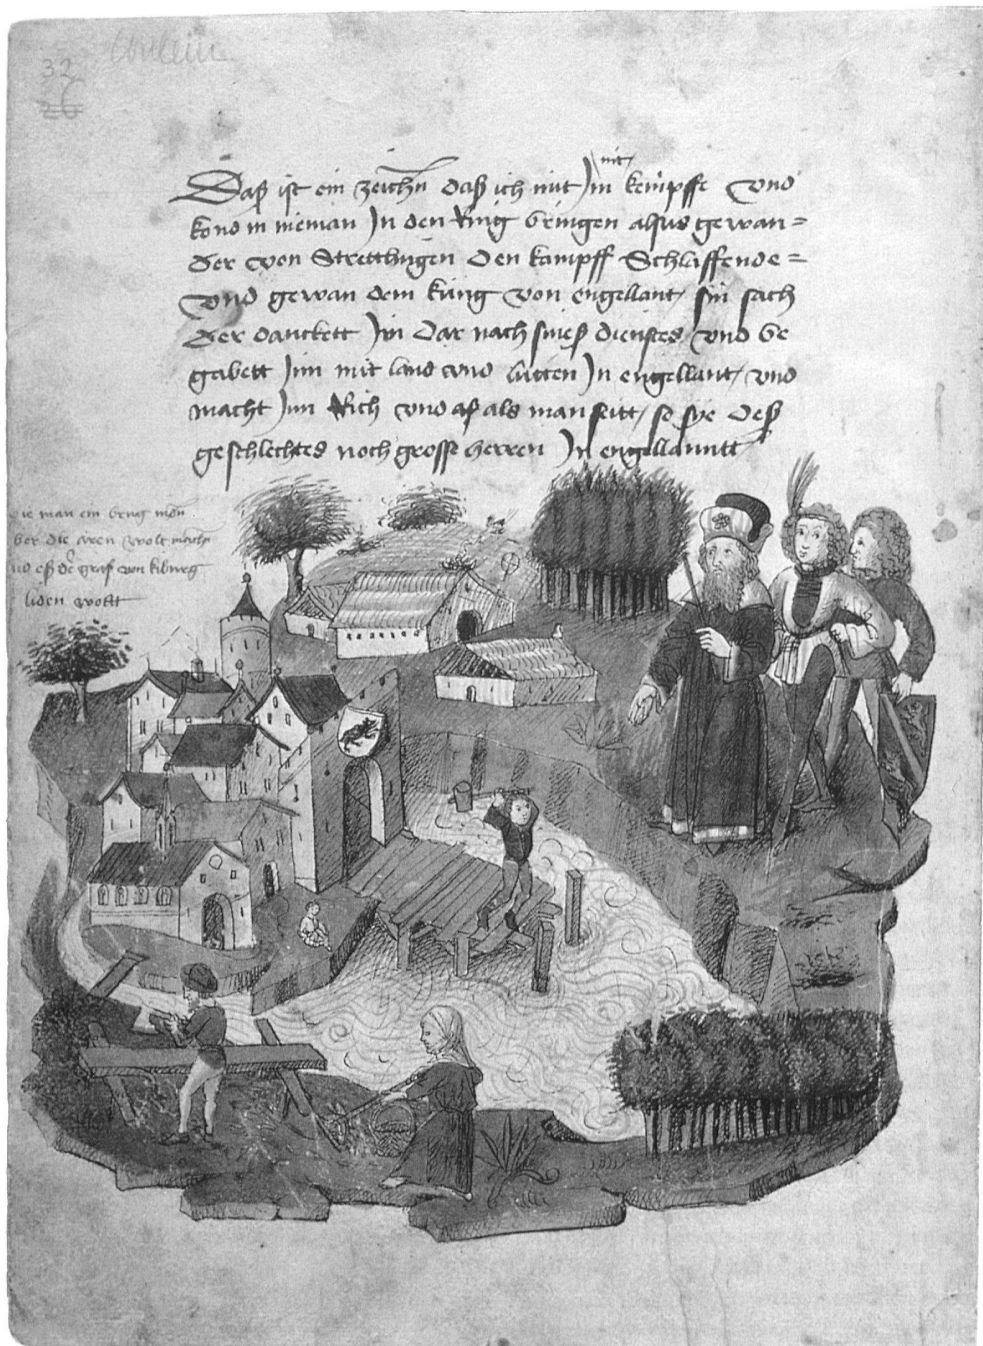 32
26
nit
Daß ist ein zeichen daß ich mit Im kempffe vnd
kond in nieman In den Ring bringen alsus gewan=
der von Stretthigen den kampff Schlaffende=
vnd gewan dem küng von engellant / sin sach
der danckett Im dar nach sineß dienstes vnd be
gabett Inn mit land vnd lütten In engellant / vnd
macht Inn Rich vnd als man seitt / so sye deß
geschlechtes noch grosse herren In engellanntt
wie man ein brug
ber die aren wolt machen
nd eß de graf von kiburg
liden wolt